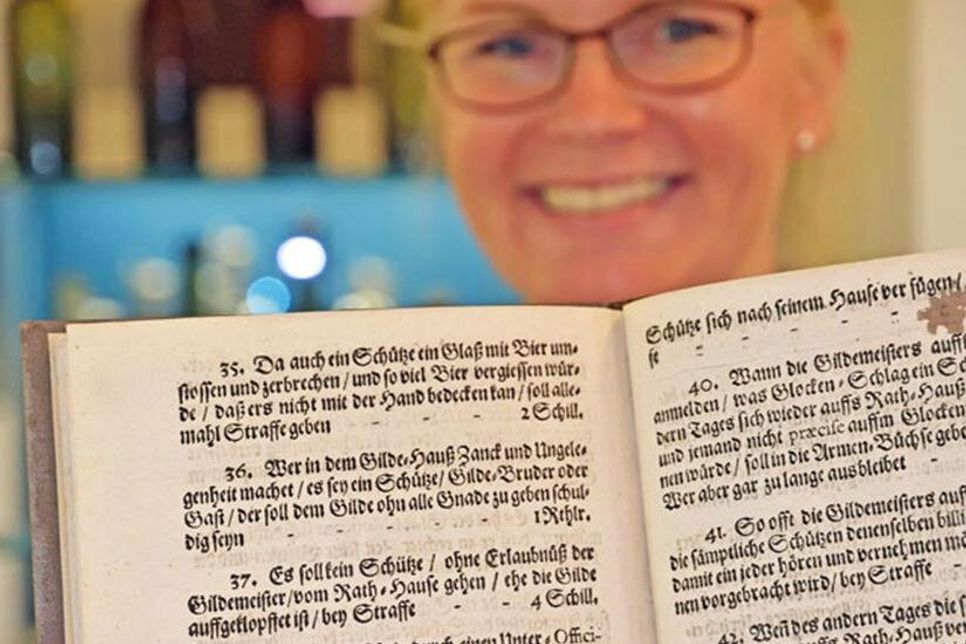 35. Da auch ein Schütze ein Glaß mit Bier um-
stossen und zerbrechen / und so viel Bier vergiessen wür-
de / daß ers nicht mit der Hand bedecken kan / soll alle-
mahl Straffe geben - - 2 Schill.
36. Wer in dem Gilde-Hauß Zanck und Ungele-
genheit machet / es sey ein Schütze / Gilde-Bruder oder
Gast / der soll dem Gilde ohn alle Gnade zu geben schul-
dig seyn - - - - - 1 Rthlr.
37. Es soll kein Schütze / ohne Erlaubnüß der
Gildemeister / vom Rath-Hause gehen / ehe die Gilde
auffgeklopffet ist / bey Straffe - - 4 Schill.
durch einen Unter-Offici-
Schütze sich nach seinem Hause verfügen /
se - - - - -
40. Wann die Gildemeisters
anmelden / was Glocken-Schlag ein
dern Tages sich wieder auffs Rath-Hauß
und jemand nicht præcise auffm Glocken
nen würde / soll in die Armen-Büchse
Wer aber gar zu lange ausbleibet -
41. So offt die Gildemeisters
die sämptliche Schützen denenselben
damit ein jeder hören und vernehmen
nen vorgebracht wird / bey Straffe -
42. Weil des andern Tages die